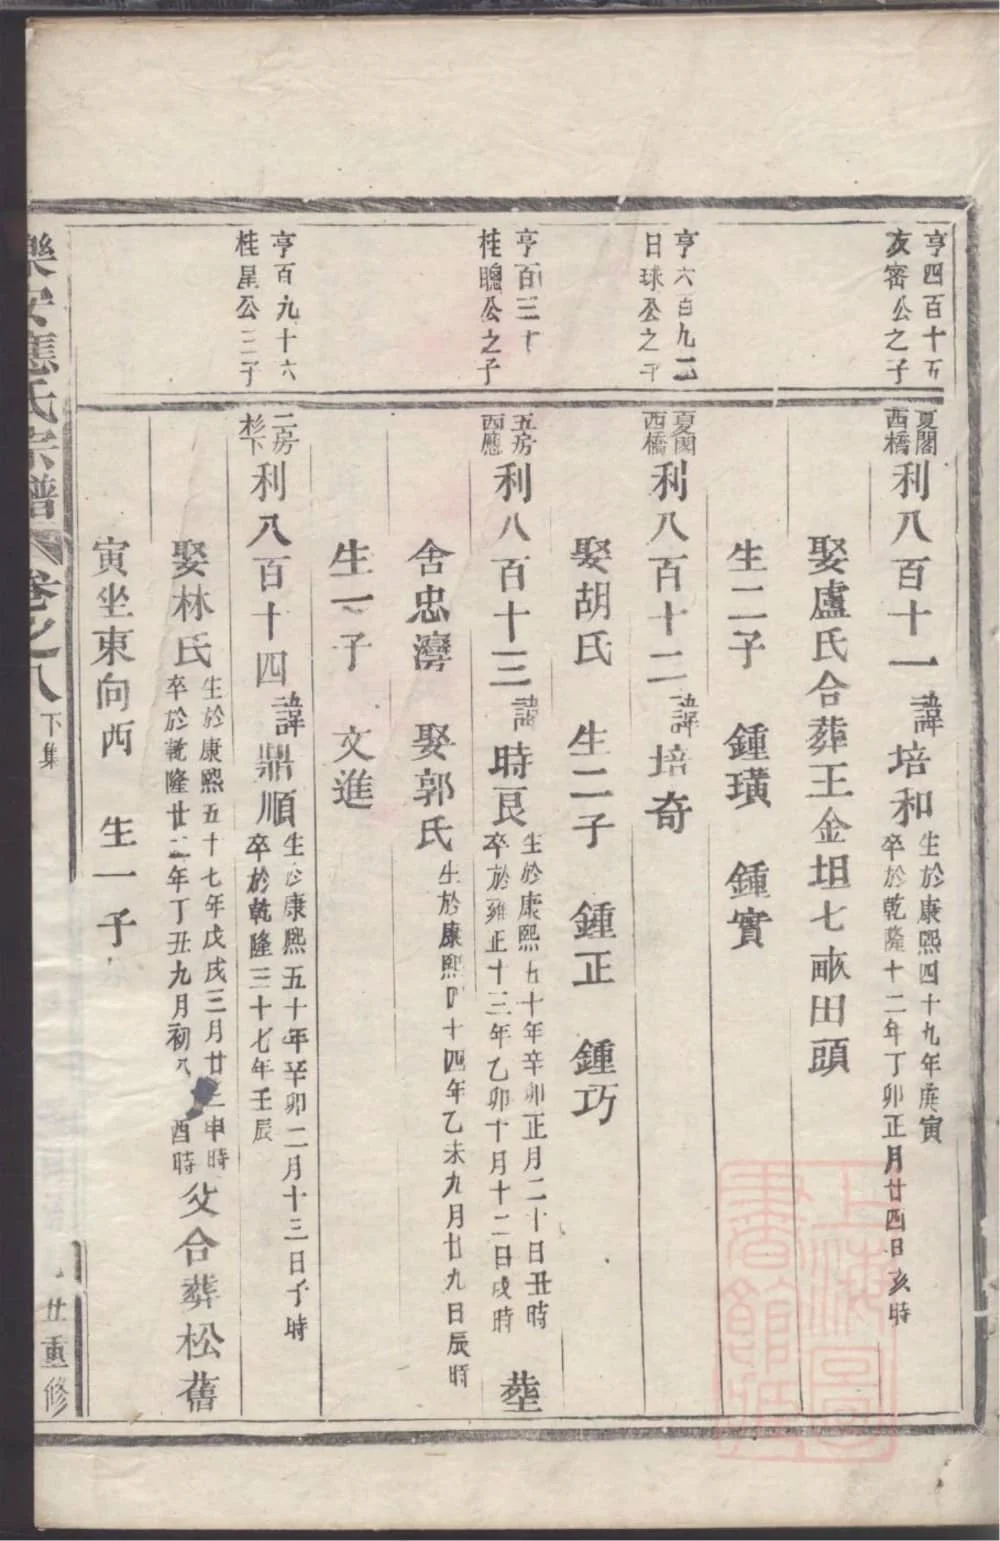 亨四百十五
友密公之子
夏閣
西橋
利八百十一
諱培和
生於康熙四十九年庚寅
卒於乾隆十二年丁卯正月廿四日亥時
娶盧氏合葬王金坦七畝田頭
生二子 鍾璜 鍾實
亨六百九二
日球公之子
夏閣
西橋
利八百十二
諱培奇
娶胡氏 生二子 鍾正 鍾巧
亨百三十
桂聰公之子
五房
西應
利八百十三
諱時良
生於康熙五十年辛卯正月二十日丑時
卒於雍正十三年乙卯十月十二日戌時
葬
舍忠灣 娶郭氏
生於康熙四十四年乙未九月廿九日辰時
生一子 文進
亨百九十六
桂星公三子
二房
杉下
利八百十四
諱鼎順
生於康熙五十年辛卯二月十三日子時
卒於乾隆三十七年壬辰
娶林氏
生於康熙五十七年戊戌三月廿 申時
卒於乾隆廿二年丁丑九月初八 酉時
合葬松舊
寅坐東向西 生一子
樂安應氏宗譜 卷之八 下集
重修
上海圖書館藏